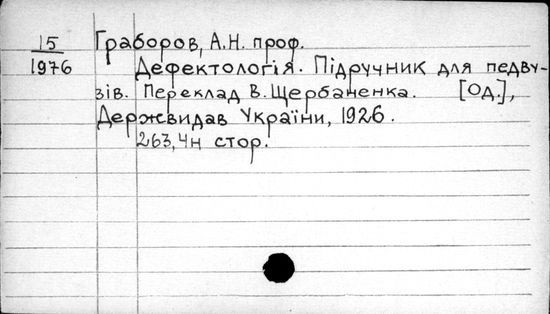 15 Граборов, А.Н. проф.
1976 Дефектологія. Підручник для педву-
зів. Переклад В. Щербаненка. [Од.],
Держвидав України, 1926.
263,4н стор.